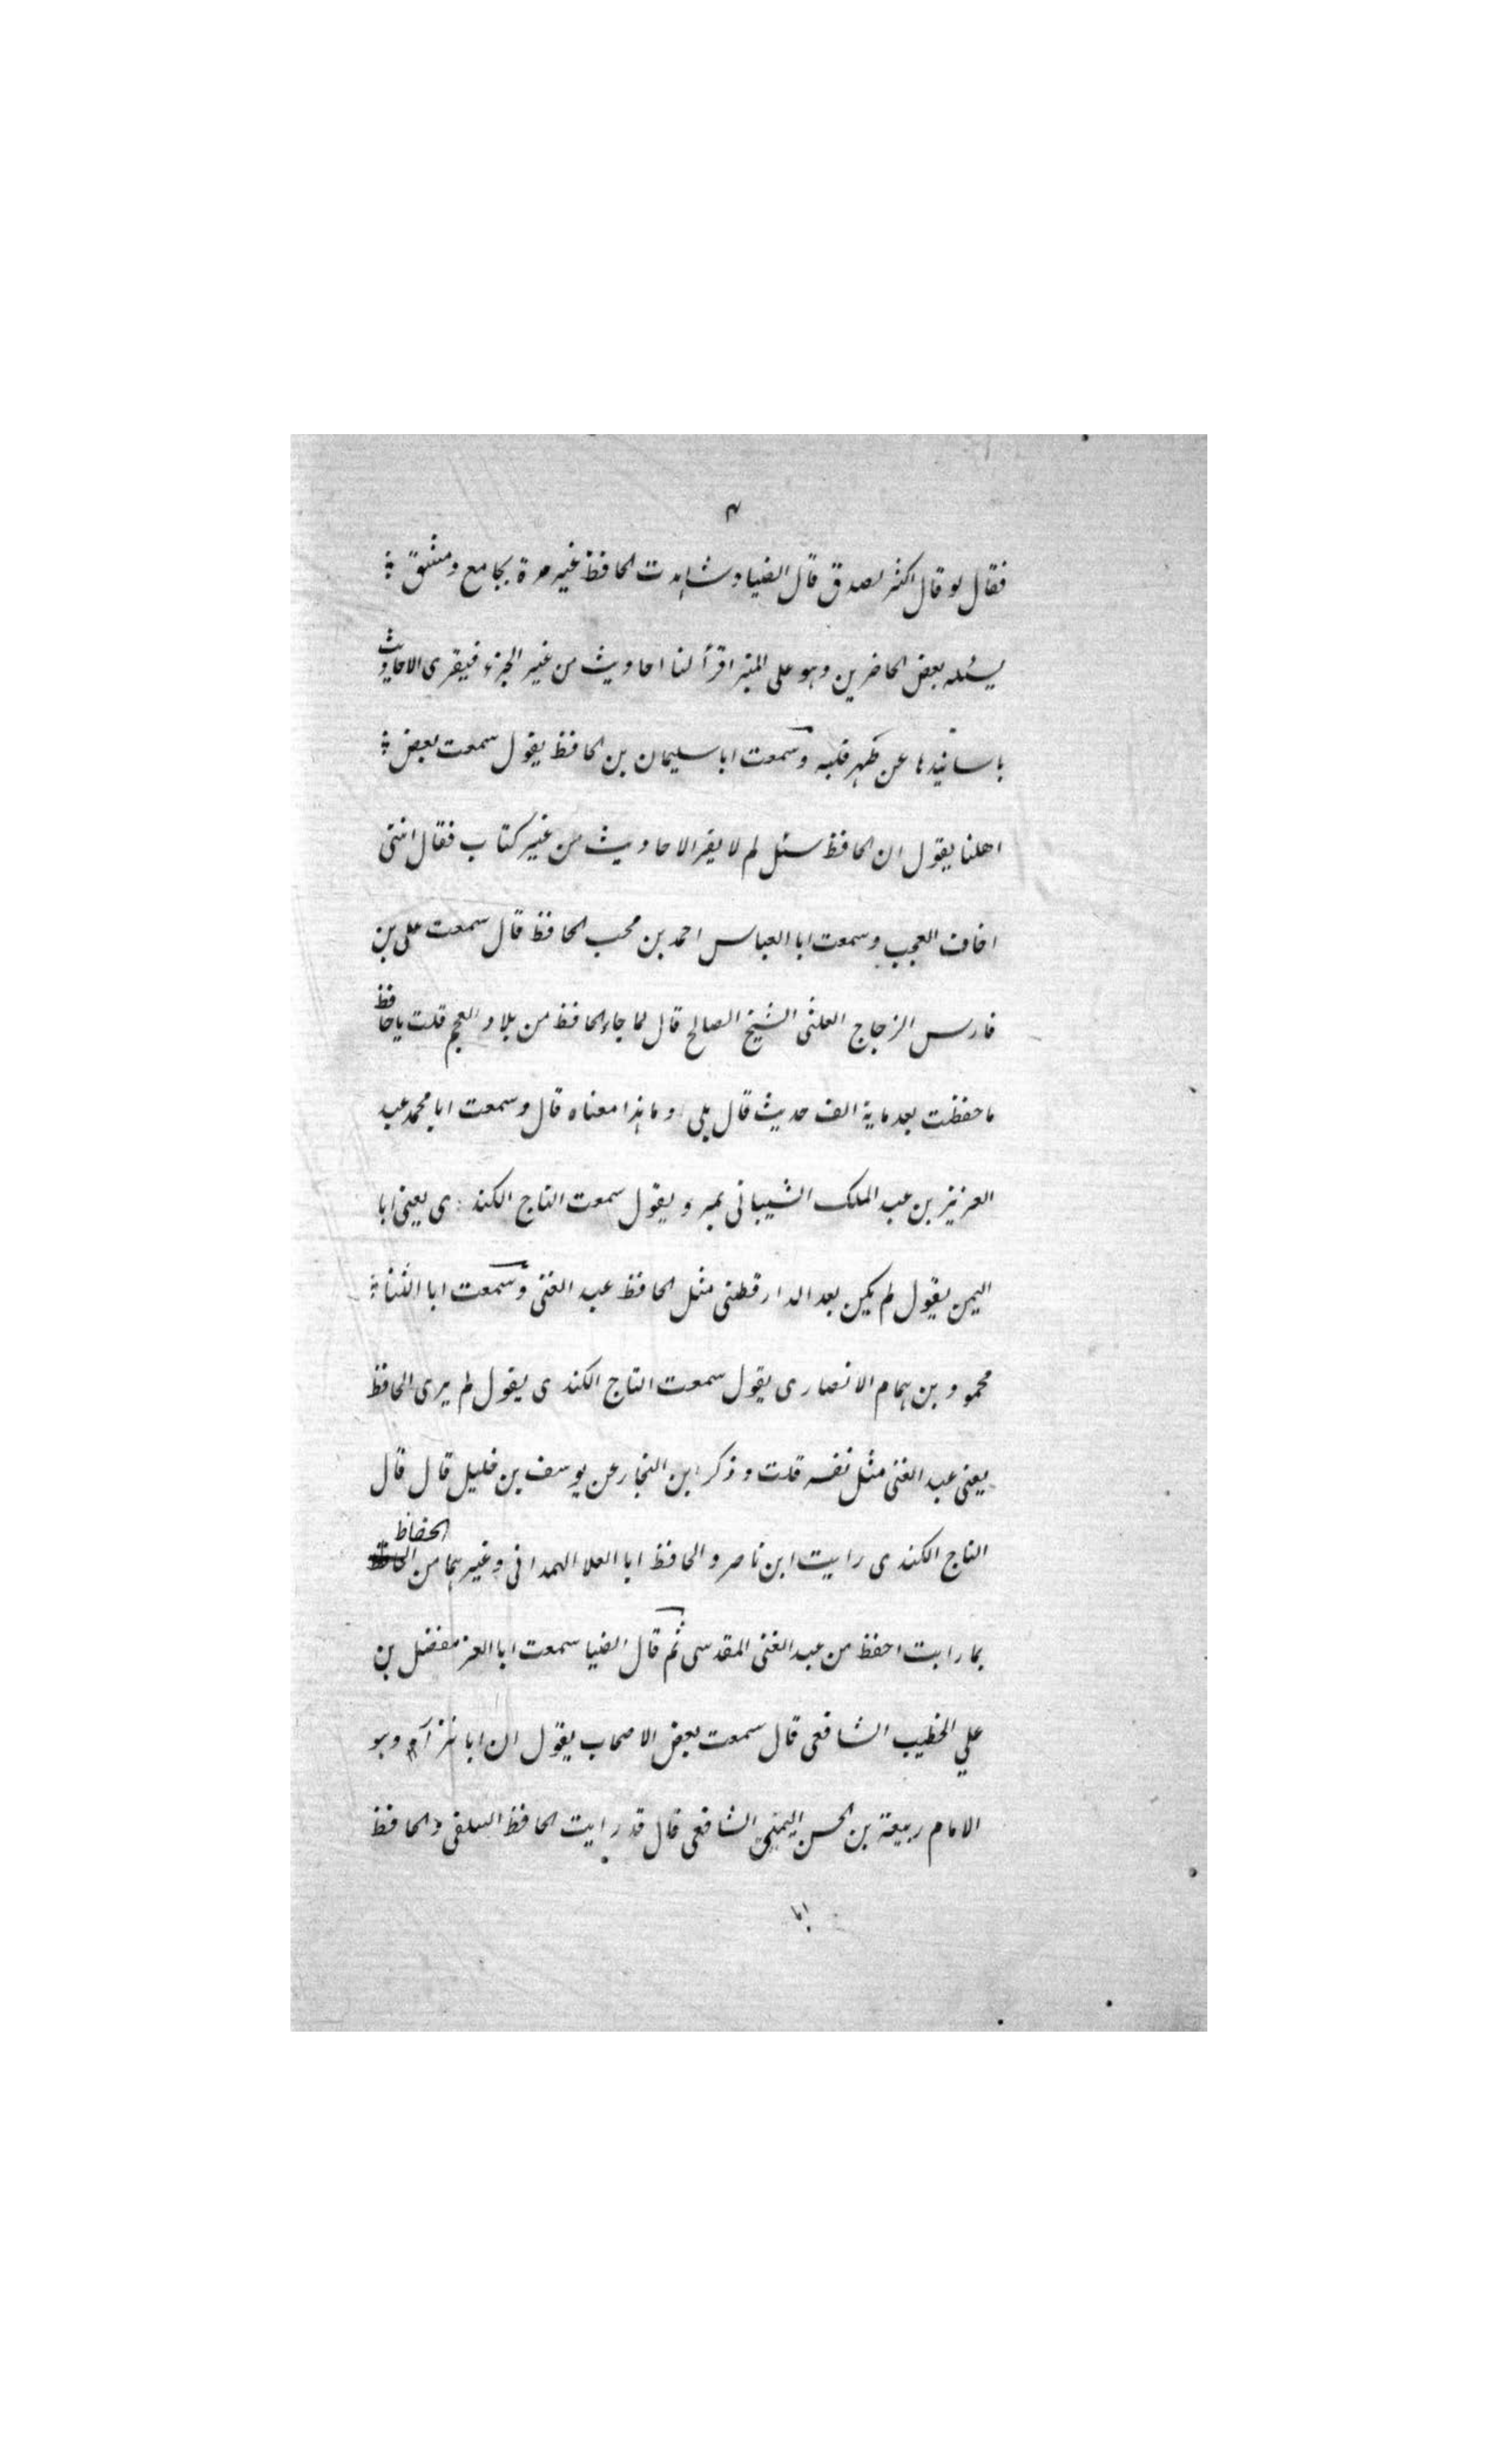 ٣
فقال لو قال اكثر لصدق قال الضيا وشاهدت الحافظ غير مرة بجامع دمشق
يسئله بعض الحاضرين وهو على المنبر اقرأ لنا احاديث من غير الجزء فيقرى الاحاديث
باسانيدها عن ظهر قلبه وسمعت ابا سليمان بن الحافظ يقول سمعت بعض
اهلنا يقول ان الحافظ سئل لم لا يقر الاحاديث من غير كتاب فقال انني
اخاف العجب وسمعت ابا العباس احمد بن محب الحافظ قال سمعت على بن
فارس الزجاج العلثى الشيخ الصالح قال لما جاء الحافظ من بلاد العجم قلت يا حافظ
ما حفظت بعد ماية الف حديث قال بلى وما هذا معناه قال وسمعت ابا محمد عبد
العزيز بن عبد الملك الشيبانى بمرو يقول سمعت التاج الكندى يعنى ابا
اليمن يقول لم يكن بعد الدارقطنى مثل الحافظ عبد الغنى وسمعت ابا الثنا
محمود بن همام الانصارى يقول سمعت التاج الكندى يقول لم يرى الحافظ
يعنى عبد الغنى مثل نفسه قلت وذكر ابن النجار عن يوسف بن خليل قال قال
التاج الكندى رايت ابن ناصر والحافظ ابا العلا الهمدانى وغيرهما من الحفاظ
بما رايت احفظ من عبد الغنى المقدسى ثم قال الضيا سمعت ابا العز مفضل بن
علي الخطيب الشافعى قال سمعت بعض الاصحاب يقول ان ابا نزار وهو
الامام ربيعة بن الحسن اليمنى الشافعى قال قد رايت الحافظ السلفى والحافظ
ابا